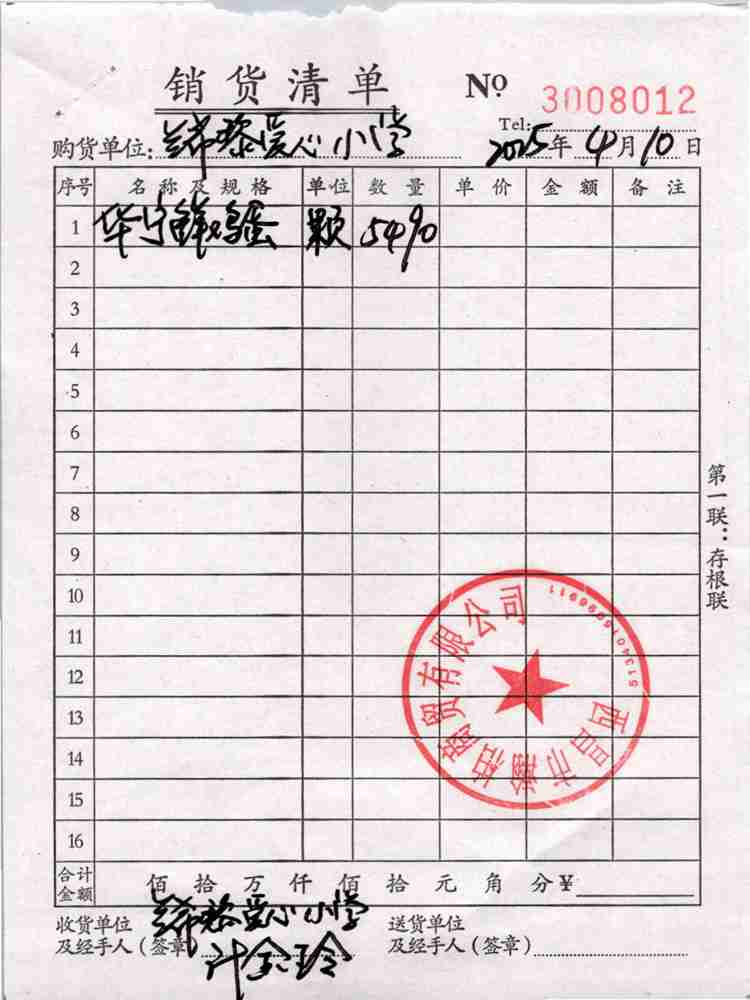 销货清单 Nº 3008012
Tel:
购货单位: 希黎爱心小学 2025年4月10日
序号 名称及规格 单位 数量 单价 金额 备注
1 华宁鲜鸡蛋 颗 5490
2
3
4
5
6
7
8
9
10
11
12
13
14
15
16
合计金额 佰 拾 万 仟 佰 拾 元 角 分 ¥
收货单位 希黎爱心小学 送货单位
及经手人(签章) 及经手人(签章)
第一联:存根联
西昌市瀚柏商贸有限公司